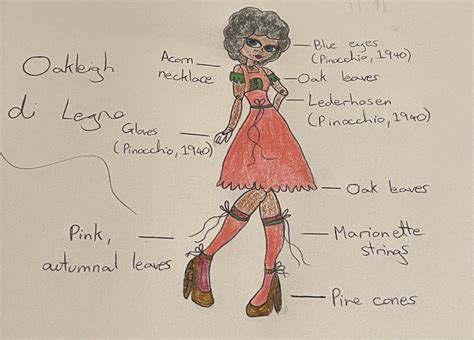 Oakleigh
di Legno
Acorn
necklace
Blue eyes
(Pinocchio, 1940)
Oak leaves
Lederhosen
(Pinocchio, 1940)
Gloves
(Pinocchio, 1940)
Oak leaves
Pink,
autumnal leaves
Marionette
strings
Pine cones